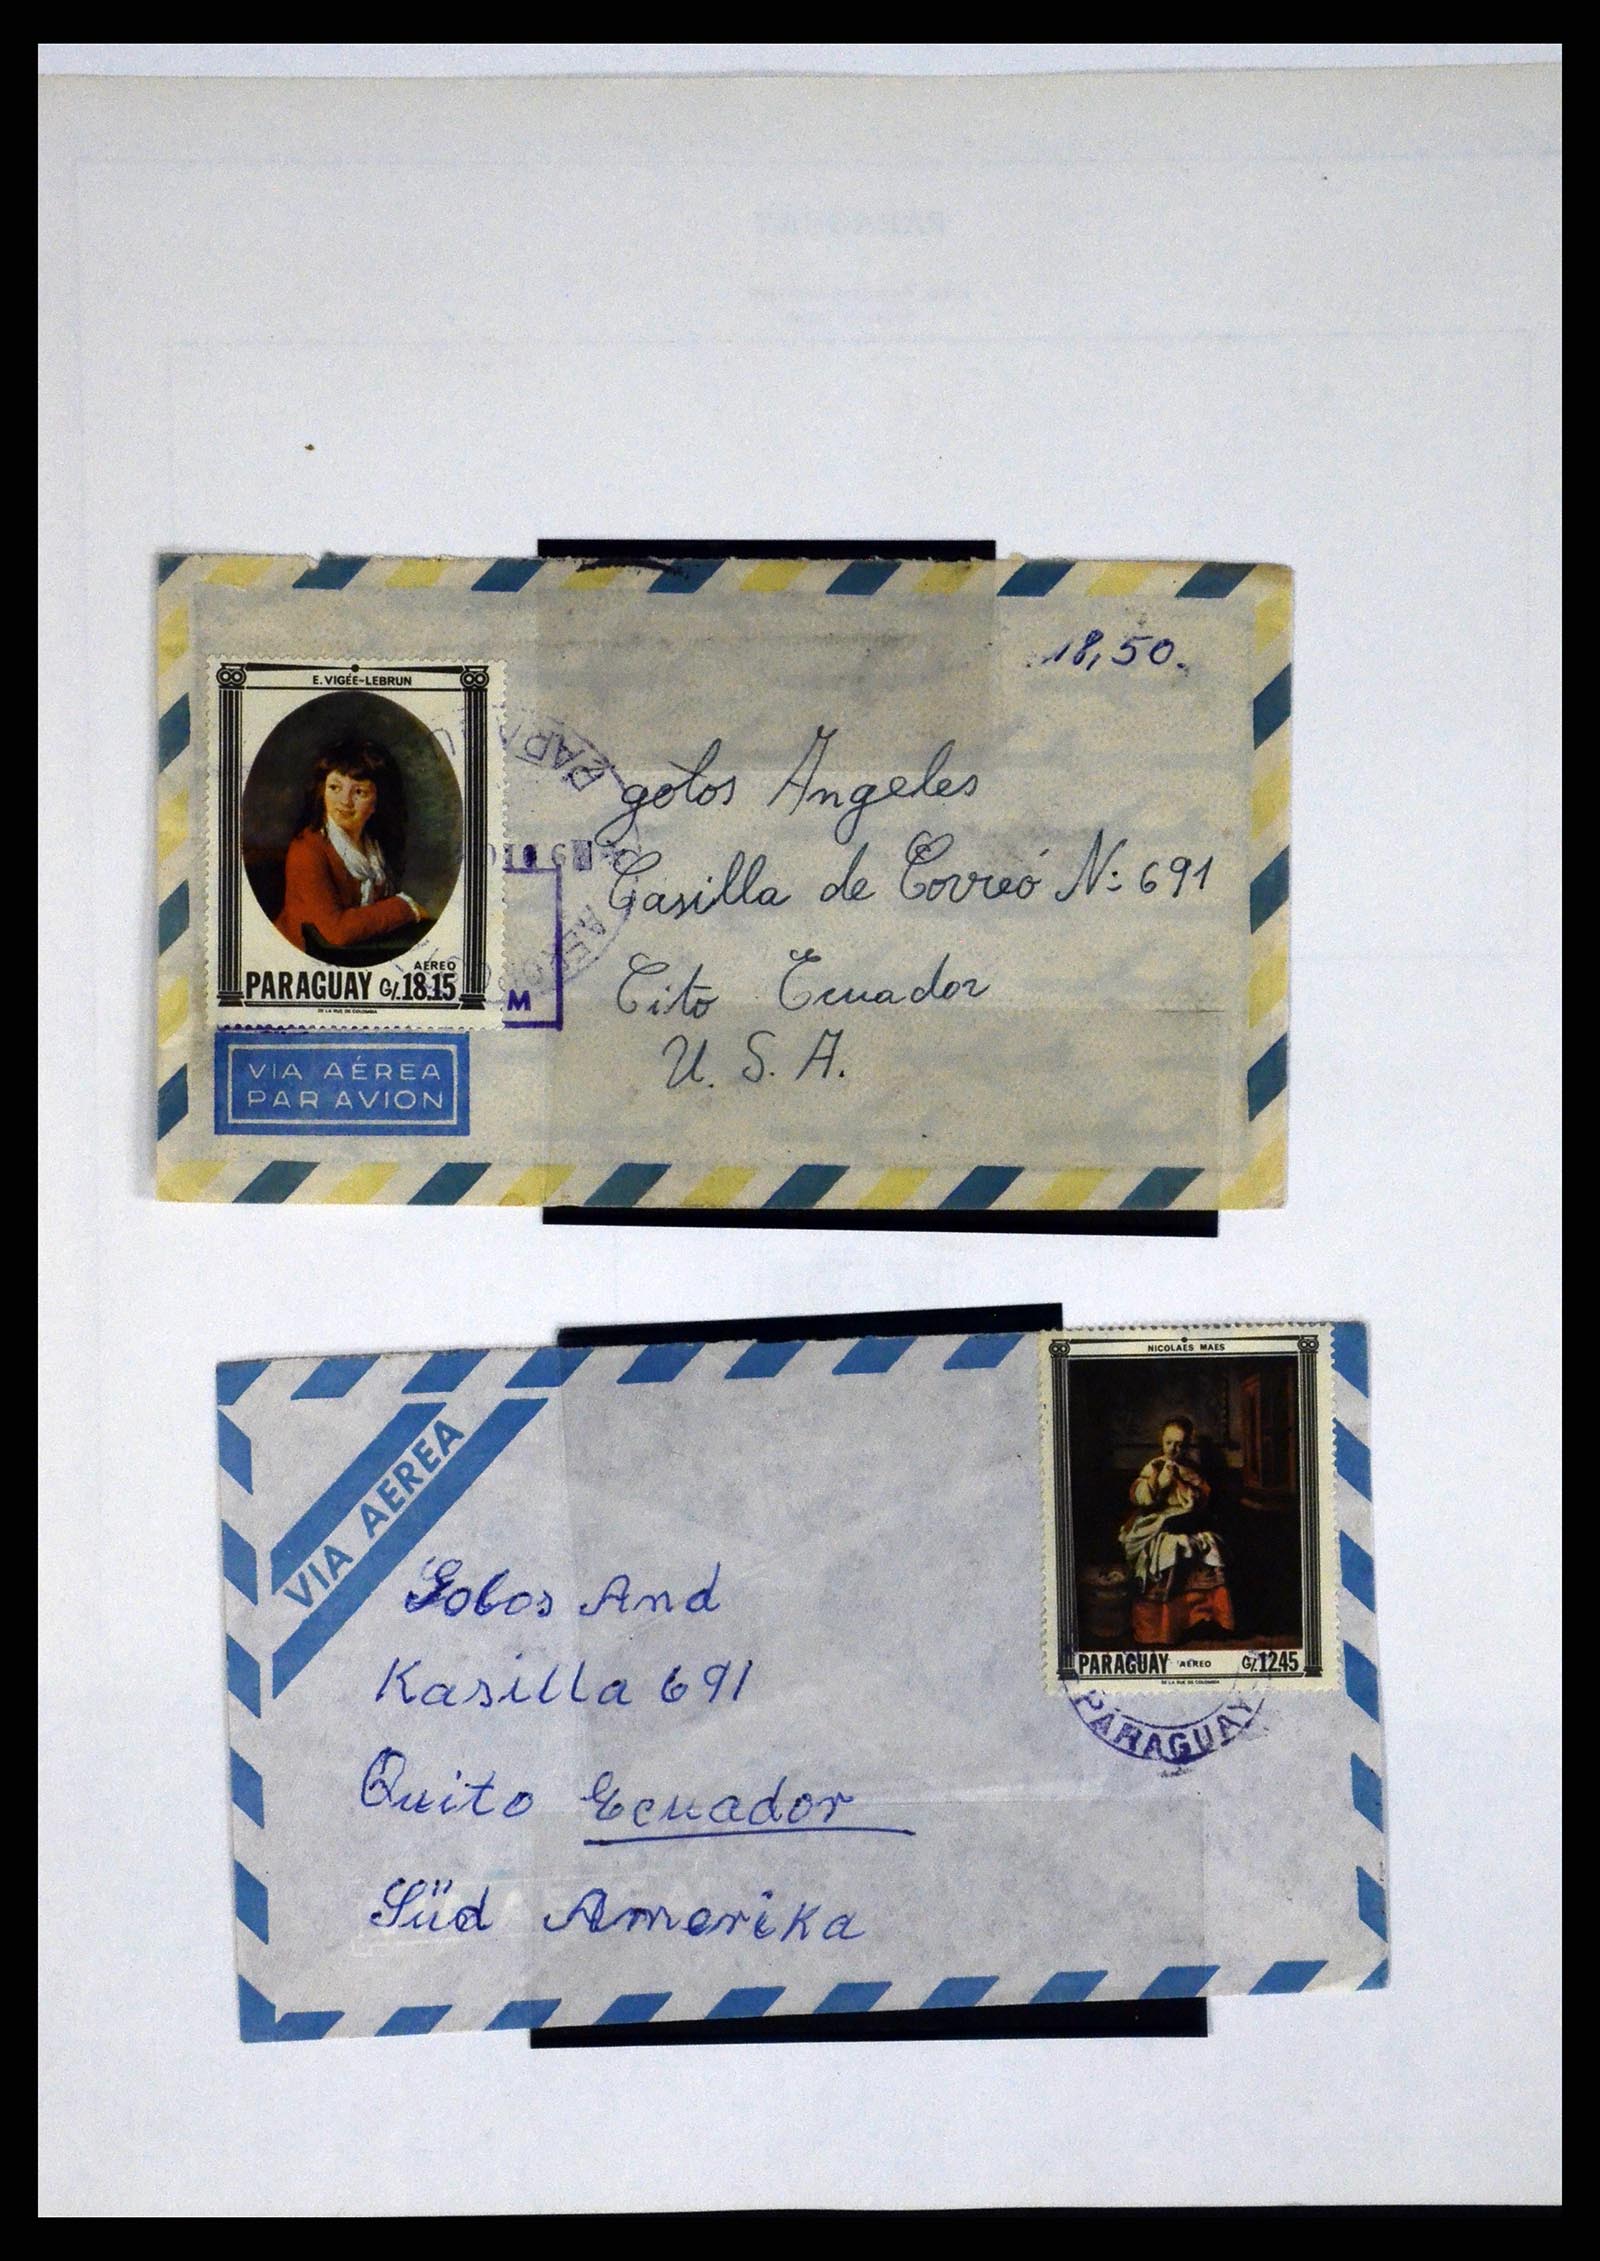 PARAGUAY
18,50.
E. VIGÉE-LEBRUN
AEREO
PARAGUAY G/.18.15
DE LA RUE DE COLOMBIA
M
VIA AÉREA
PAR AVION
golos Angeles
Casilla de Correó N: 691
Cito Ecuador
U. S. A.
NICOLAES MAES
PARAGUAY AEREO G/.12.45
DE LA RUE DE COLOMBIA
PARAGUAY
VIA AEREA
Golos And
Kasilla 691
Quito Ecuador
Süd Amerika